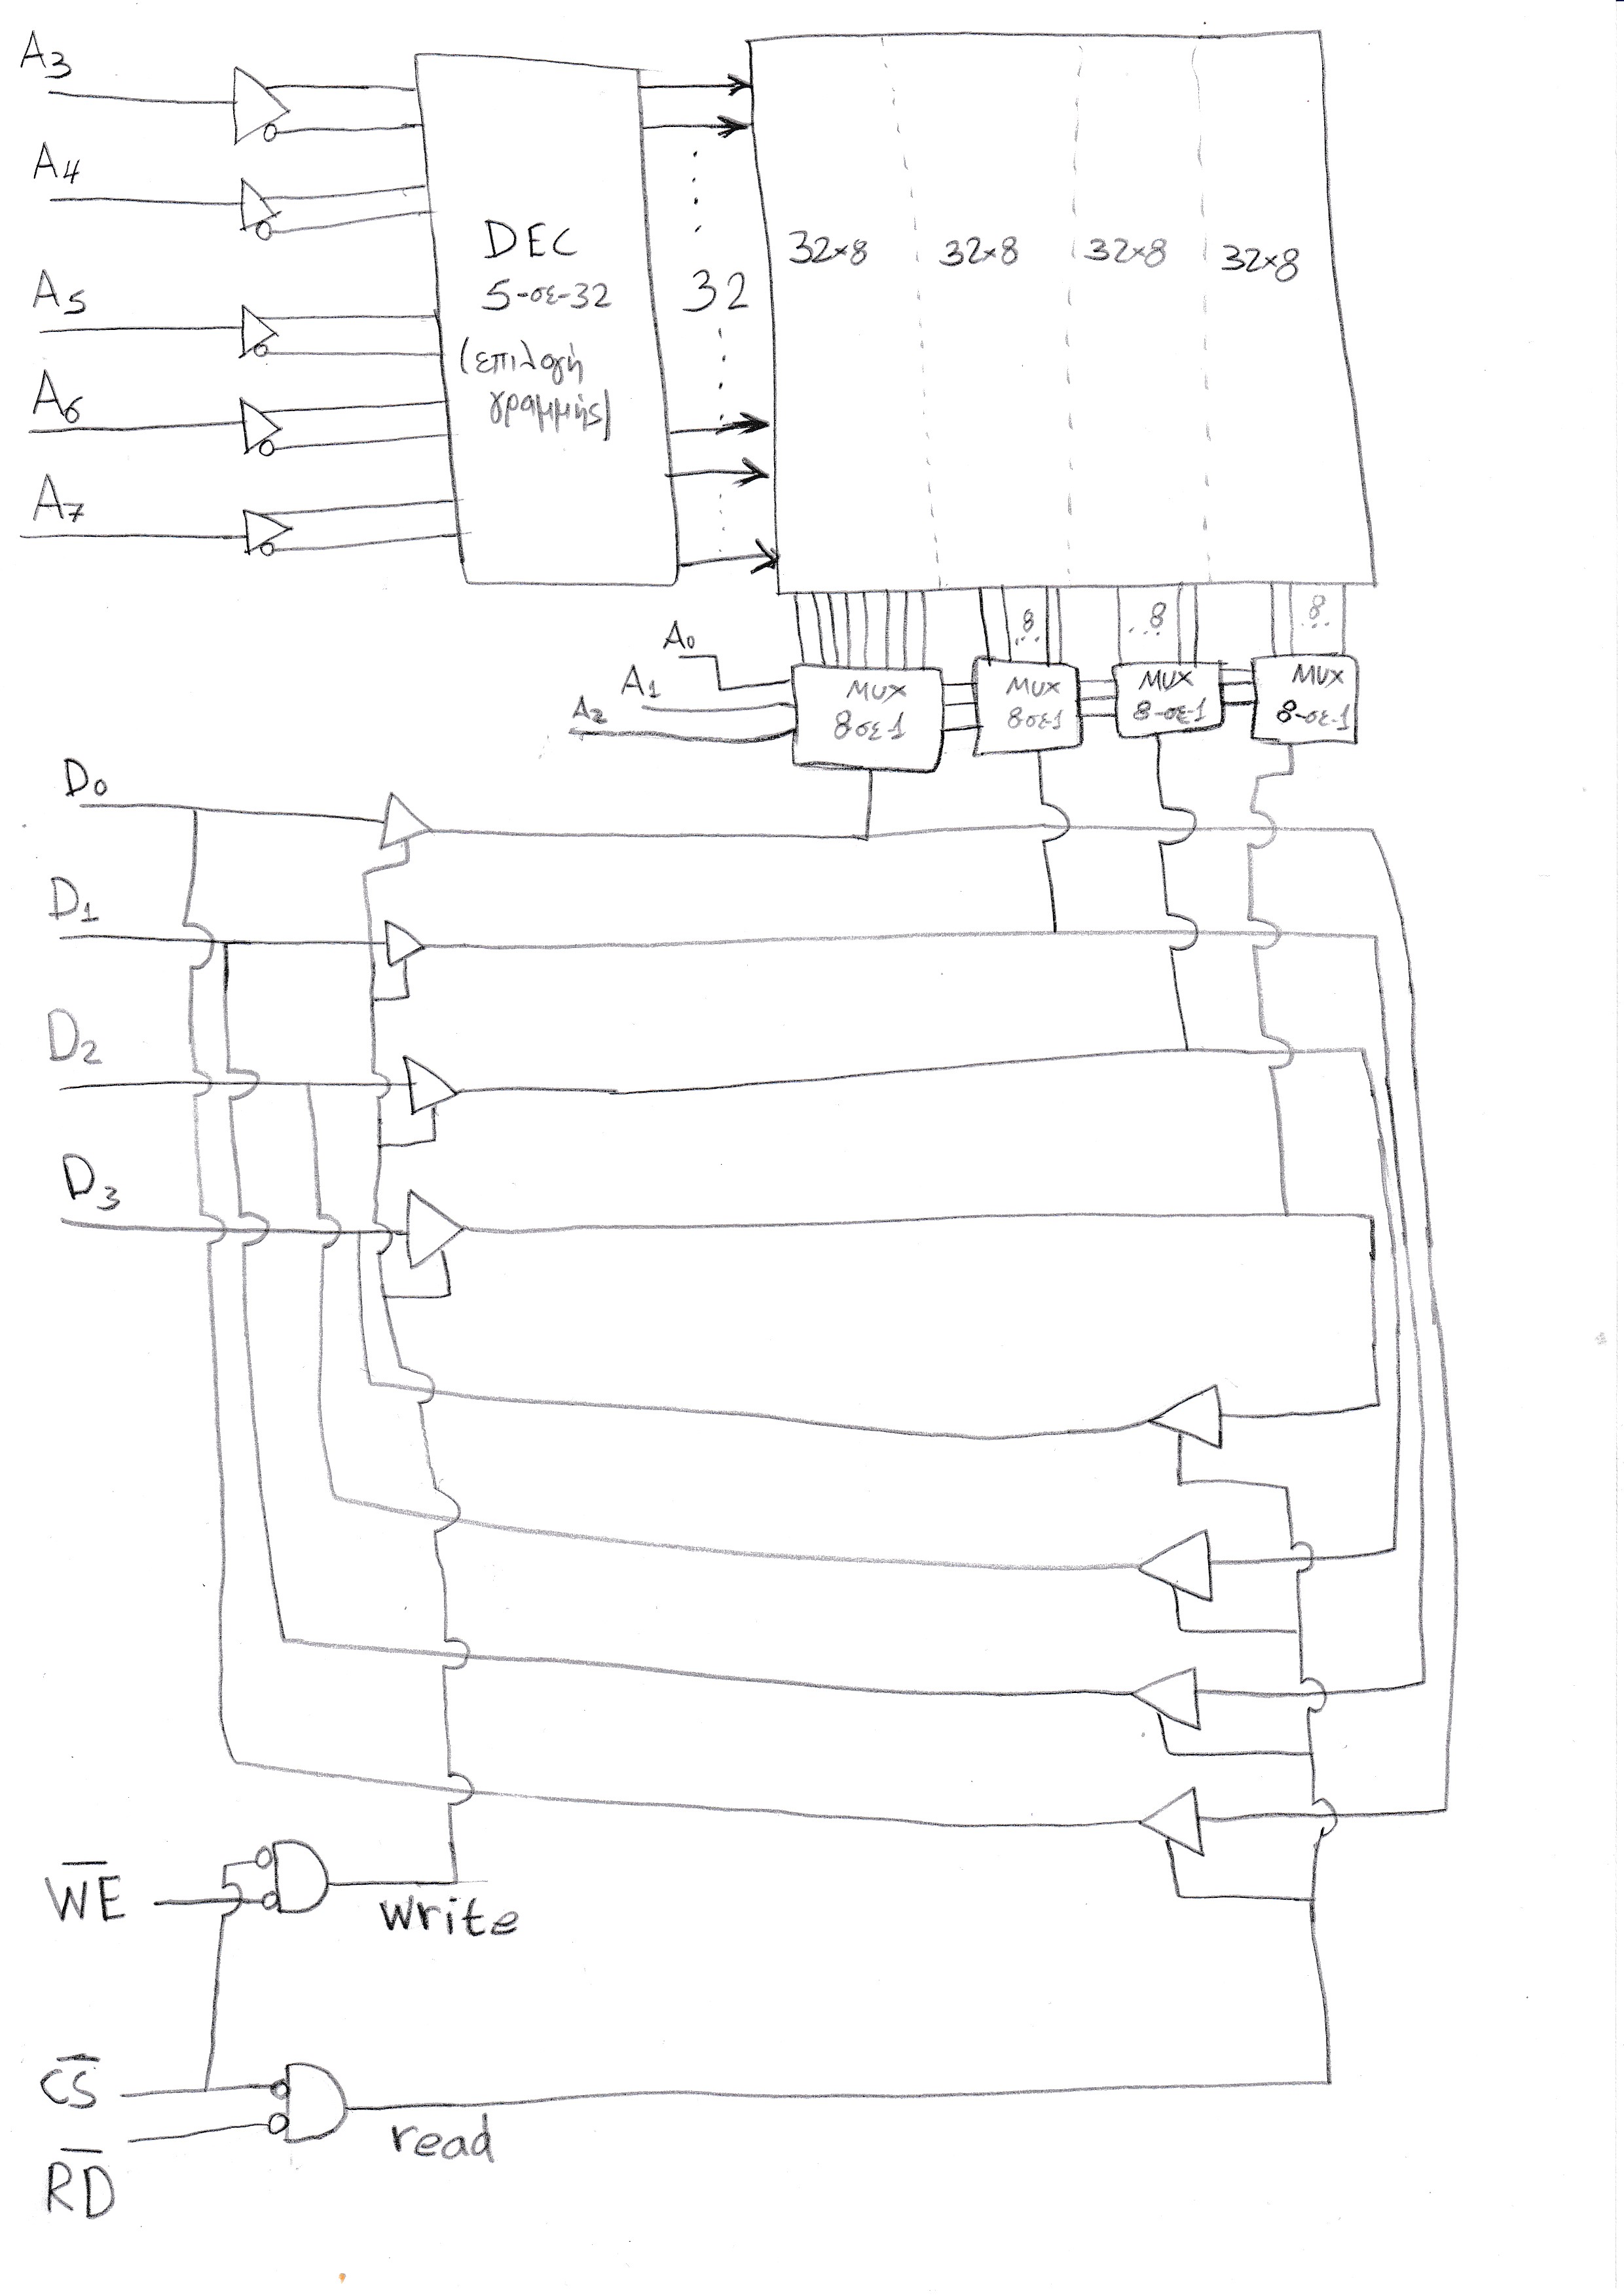 A3
A4
A5
A6
A7
DEC
5-σε-32
(επιλογή
γραμμής)
32
32×8
32×8
32×8
32×8
8
...
8
...
8
...
A0
A1
A2
MUX
8σε1
MUX
8σε1
MUX
8-σε1
MUX
8-σε-1
D0
D1
D2
D3
W̅E̅
write
C̅S̅
R̅D̅
read